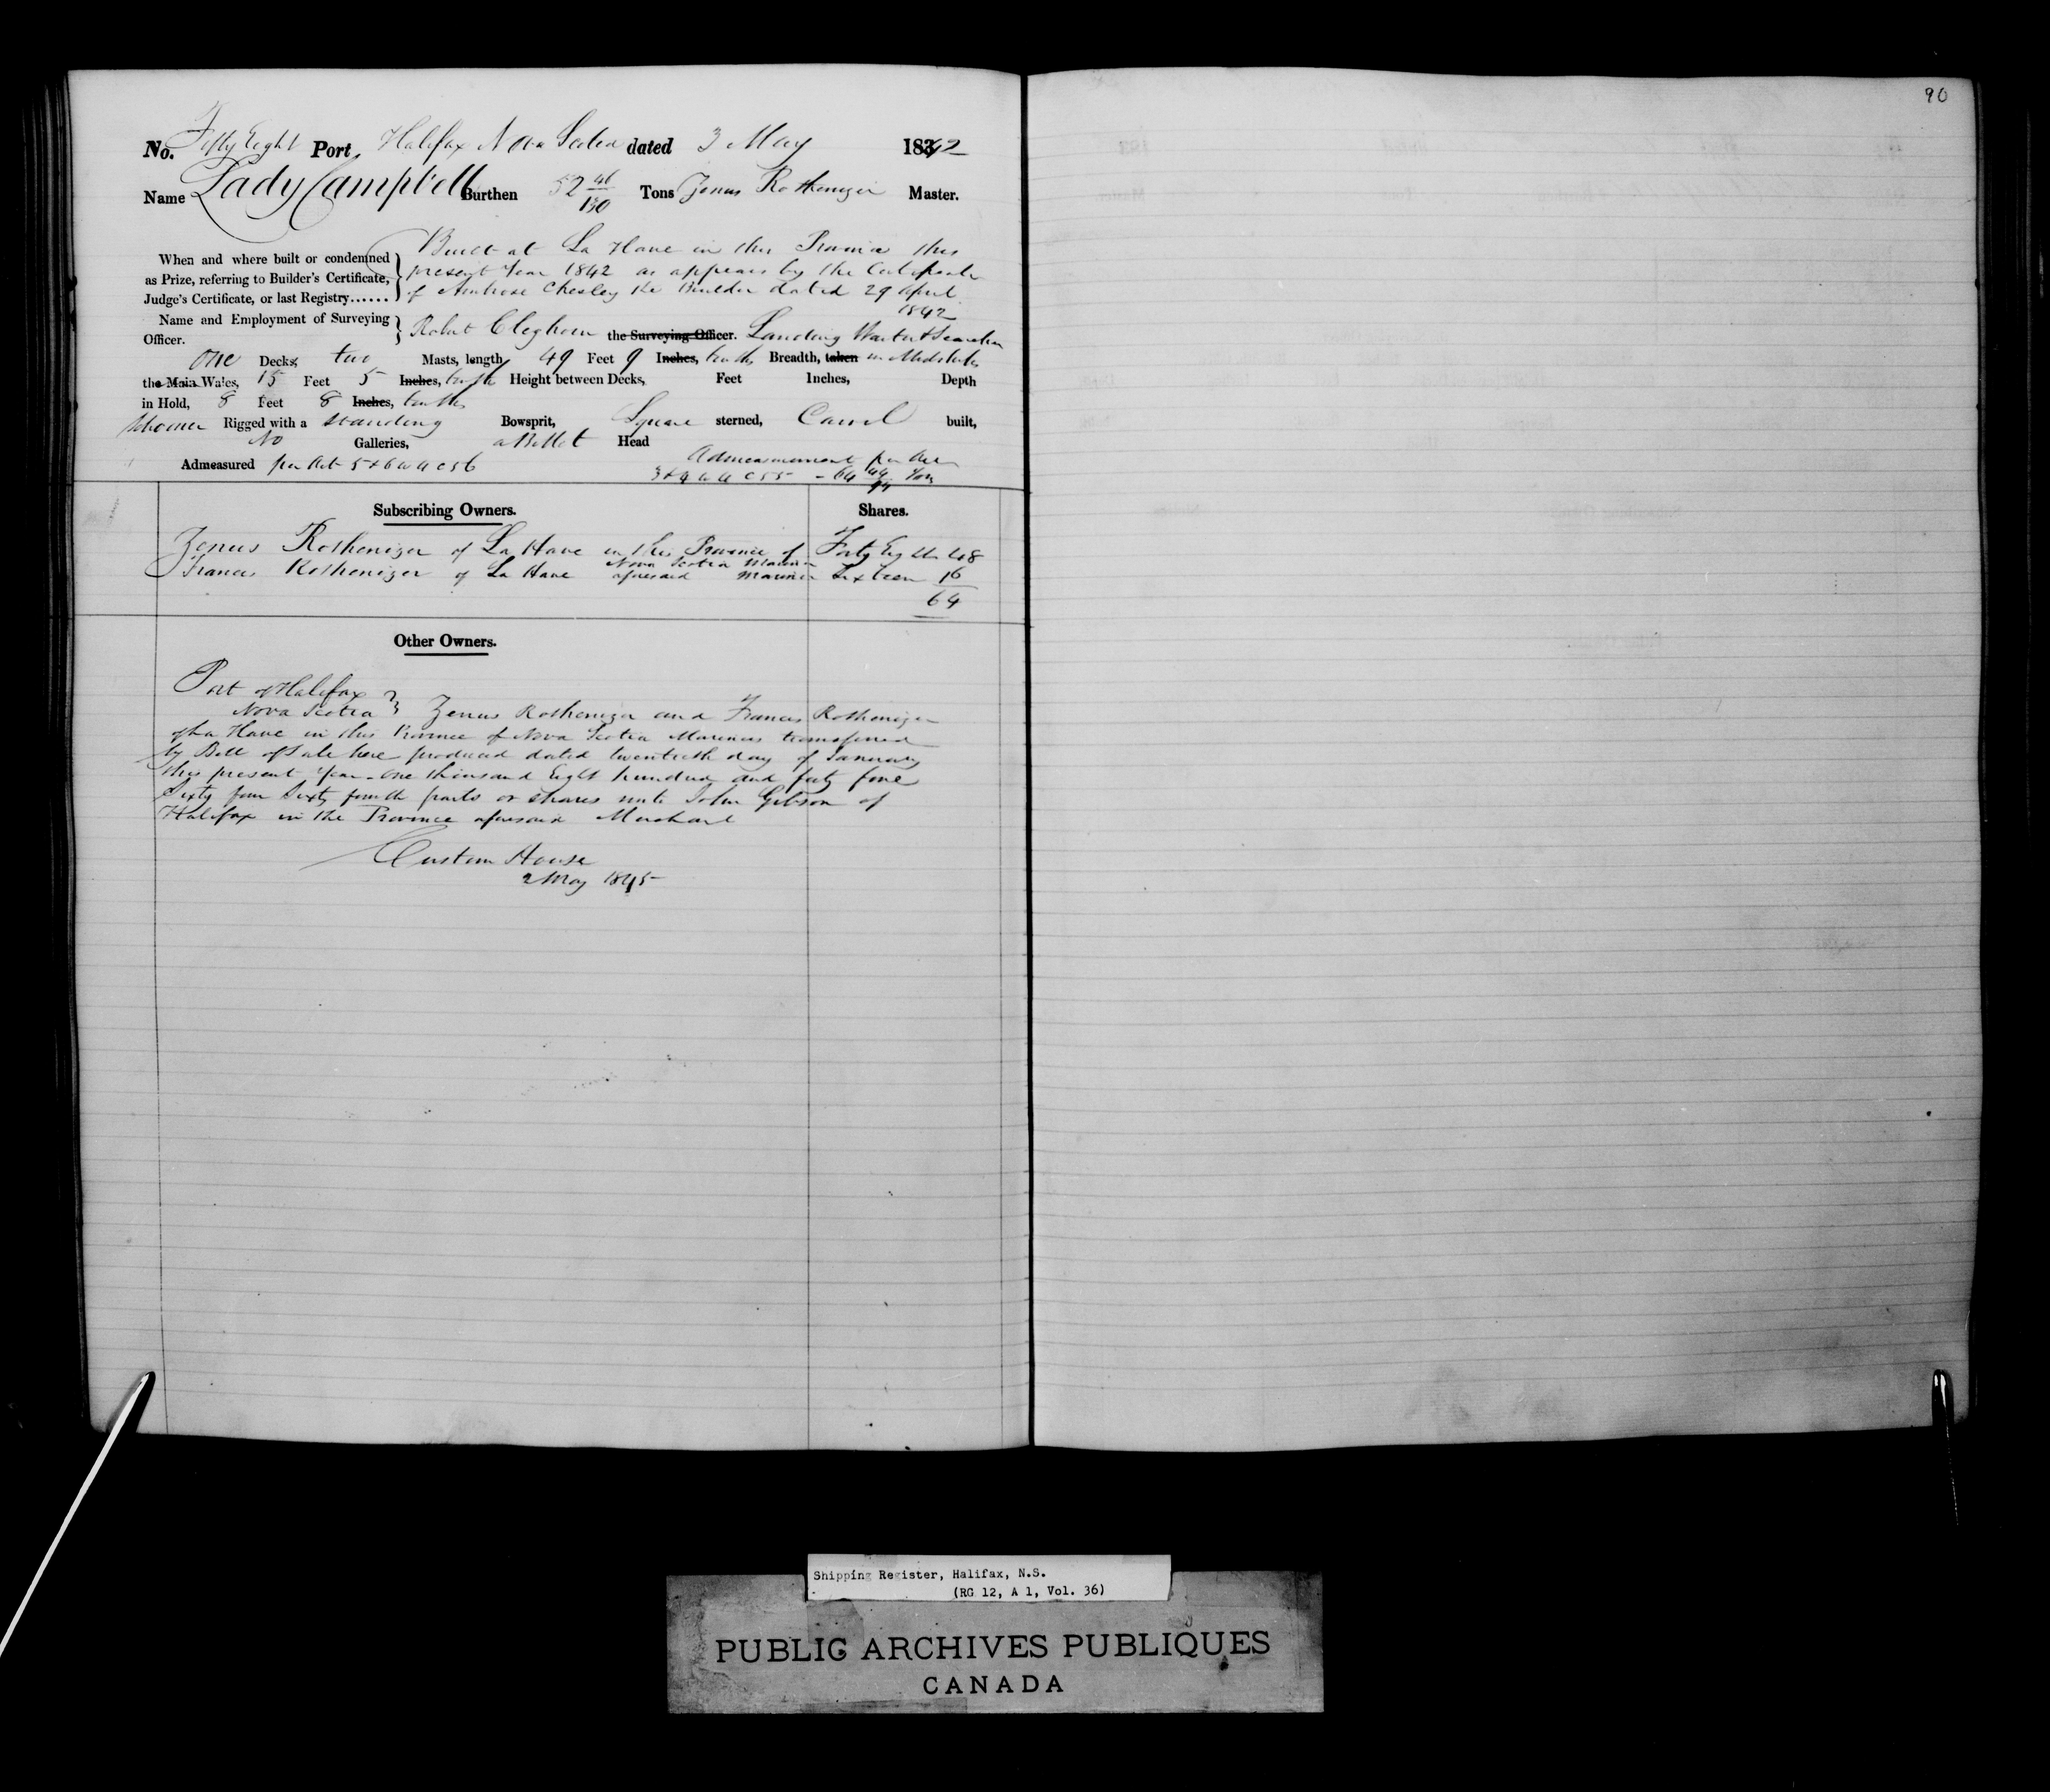 90
No. Fifty Eight Port Halifax Nova Scotia dated 3 May 1842
Name Lady Campbell Burthen 52 46/130 Tons Zenus Rothenizer Master.
When and where built or condemned as Prize, referring to Builder's Certificate, Judge's Certificate, or last Registry......
Built at La Have in this Province this
present Year 1842 as appears by the Certificate
of Ambrose Chesley the Builder dated 29 April
1842
Name and Employment of Surveying Officer. Robert Cleghorn the Surveying Officer. Landing Waiter & Searcher
One Decks, two Masts, length 49 Feet 9 Inches, tenths Breadth, taken in Midships
the Main Wales, 15 Feet 5 Inches, tenths Height between Decks, Feet Inches, Depth
in Hold, 8 Feet 8 Inches, tenths
Schooner Rigged with a Standing Bowsprit, Square sterned, Carvel built,
No Galleries, a Billet Head
Admeasured per Act 5 & 6 W 4 C 56
Admeasurement per Act
3 & 4 W 4 C 55 - 64 44/94 Tons
Subscribing Owners. Shares.
Zenus Rothenizer of La Have in this Province of Nova Scotia Mariner Forty Eight 48
Francis Rothenizer of La Have aforesaid Mariner Sixteen 16
64
Other Owners.
Port of Halifax
Nova Scotia } Zenus Rothenizer and Francis Rothenizer
of La Have in this Province of Nova Scotia Mariners transferred
by Bill of Sale here produced dated twentieth day of January
this present Year one thousand Eight hundred and forty five
Sixty four Sixty fourth parts or shares unto John Gibson of
Halifax in the Province aforesaid Merchant
Custom House
2 May 1845
Shipping Register, Halifax, N.S.
(RG 12, A 1, Vol. 36)
PUBLIC ARCHIVES PUBLIQUES
CANADA